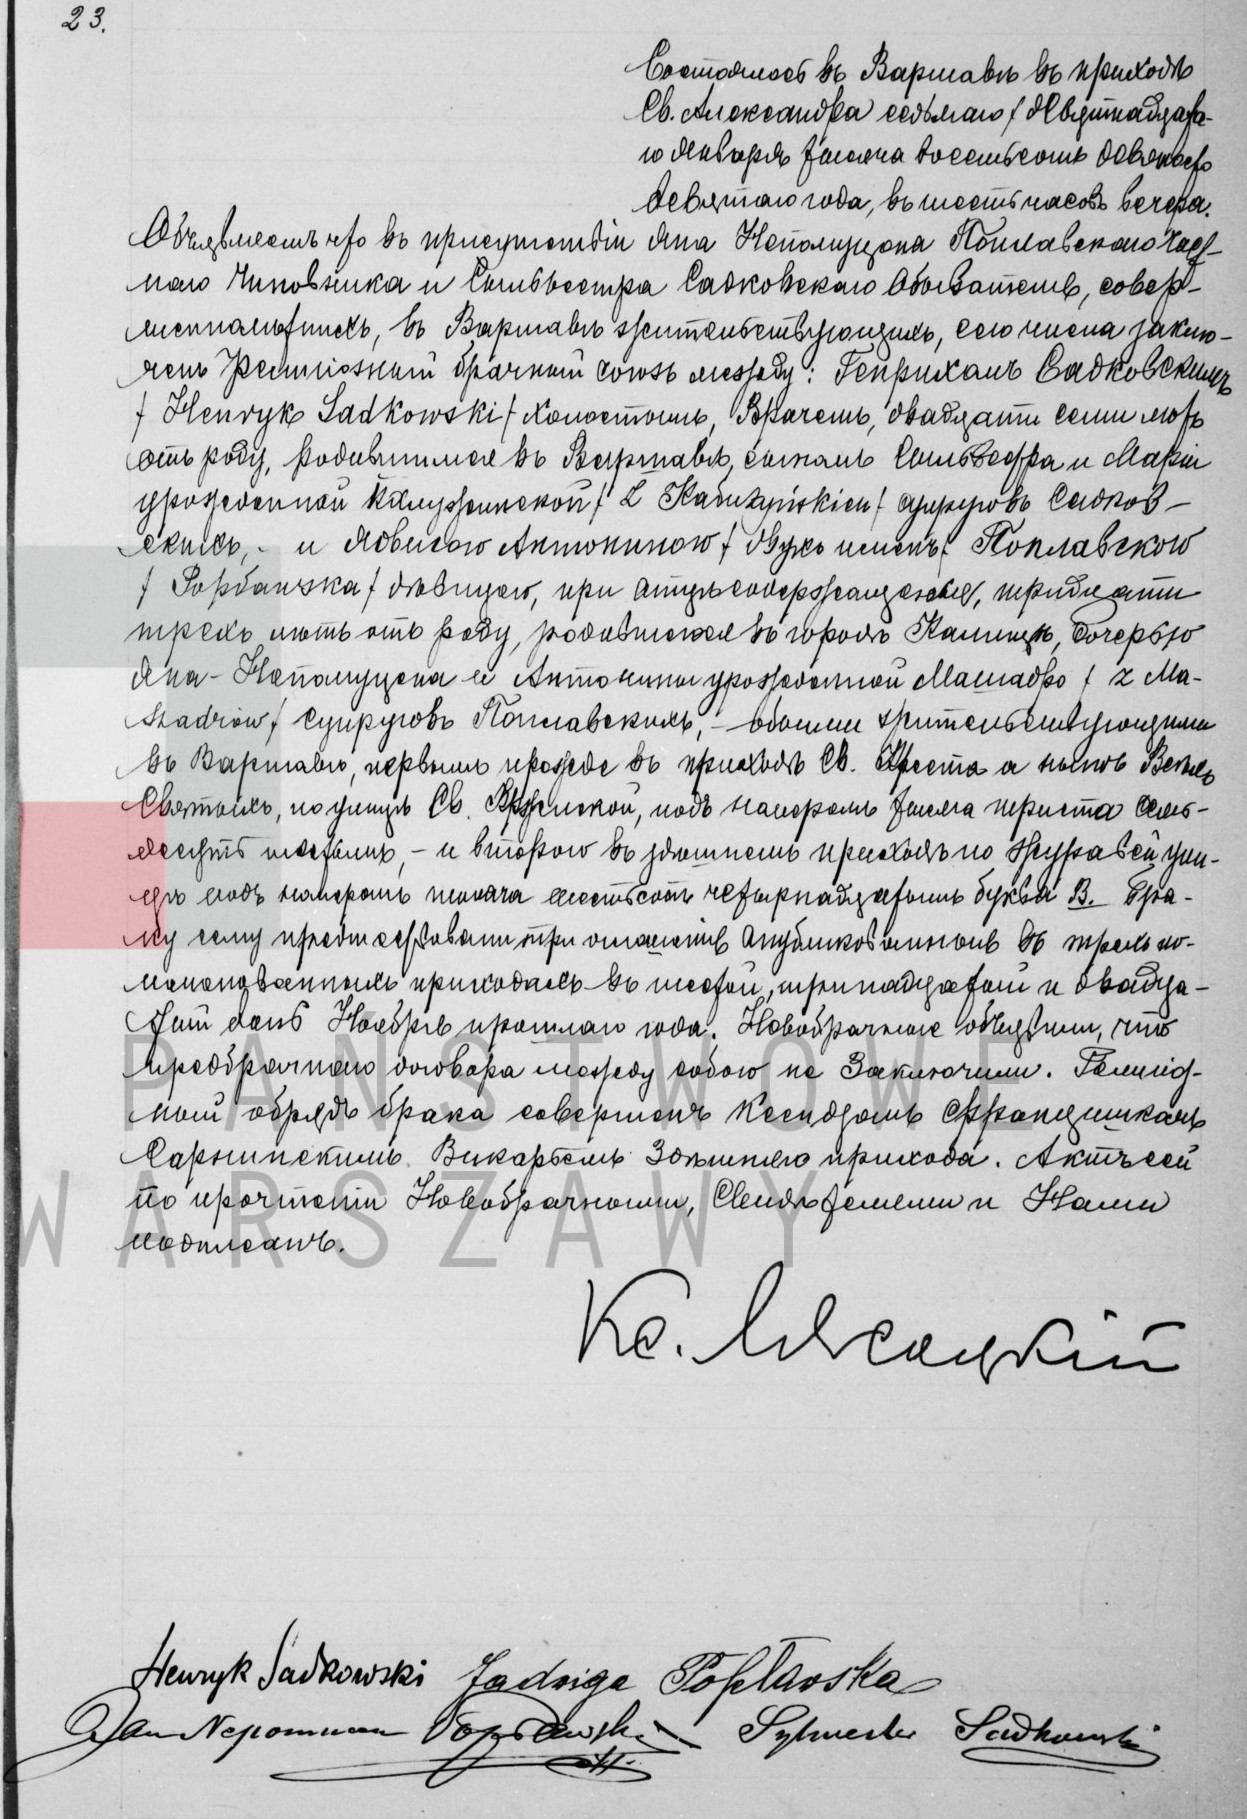 23.
Состоялось въ Варшавѣ въ приходѣ
Св. Александра седьмаго / девятнадцата-
го Января тысяча восемьсотъ девяносто
девятаго года, въ шесть часовъ вечера.
Объявляемъ что въ присутствіи Яна Непомуцена Поплавскаго част-
наго чиновника и Сильвестра Садковскаго Обывателя, совер-
шеннолѣтнихъ, въ Варшавѣ жительствующихъ, сего числа заклю-
ченъ Религіозный брачный союзъ между: Генрихомъ Садковскимъ
/ Henryk Sadkowski / холостымъ, Врачемъ, двадцати семи лѣтъ
отъ роду, родившимся въ Варшавѣ, сыномъ Сильвестра и Маріи
урожденной Калужинской / z Kałużyńskich / супруговъ Садков-
скихъ, - и Ядвигою Антониною / двухъ именъ / Поплавскою
/ Popławska / дѣвицею, при отцѣ содержащеюся, тридцати
трехъ лѣтъ отъ роду, родившеюся въ городѣ Калишѣ, дочерью
Яна-Непомуцена и Антонины урожденной Машадро / z Ma-
szadrów / супруговъ Поплавскихъ, - обоими жительствующими
въ Варшавѣ, первымъ прежде въ приходѣ Св. Креста а нынѣ Всѣхъ
Святыхъ, по улицѣ Св. Кржиской, подъ номеромъ тысяча триста семь-
десятъ шестымъ, - и второю въ здѣшнемъ приходѣ по Журавей ули-
цѣ подъ номеромъ тысяча шестьсотъ четырнадцатымъ буква В. Бра-
ку сему предшествовали три оглашенія опубликованныя въ трехъ по-
именованныхъ приходахъ въ шестой, тринадцатый и двадца-
тый день Ноября прошлаго года. Новобрачные объявили, что
предбрачнаго договора между собою не заключили. Религіоз-
ный обрядъ брака совершенъ Ксендзомъ Францишкомъ
Викаріемъ здѣшняго прихода. Актъ сей
по прочтеніи Новобрачными, Свидѣтелями и Нами
подписанъ.
Кс.
Henryk Sadkowski Jadwiga Popławska
Jan Nepomucen Popławski Sylwester Sadkowski
PAŃSTWOWE
WARSZAWY